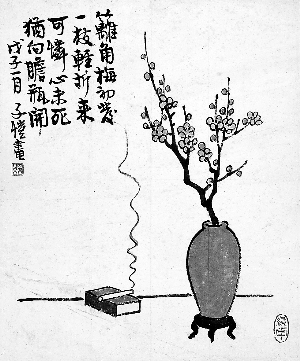 籬角梅初發
一枝輕折来
可憐心未死
猶向膽瓶開
戊子一月 子愷畫